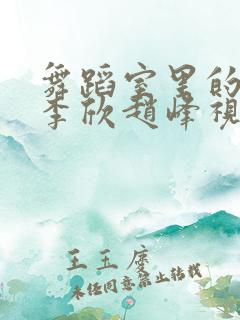 舞蹈室里的
李欣赵峰視
王玉度
未经同意禁止转载